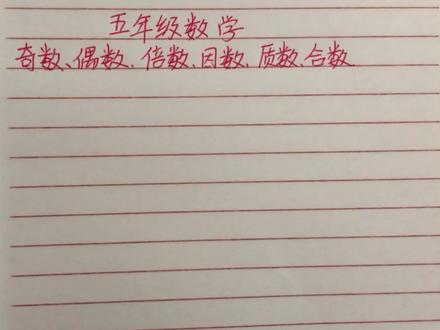 五年级数学
奇数、偶数、倍数、因数、质数、合数